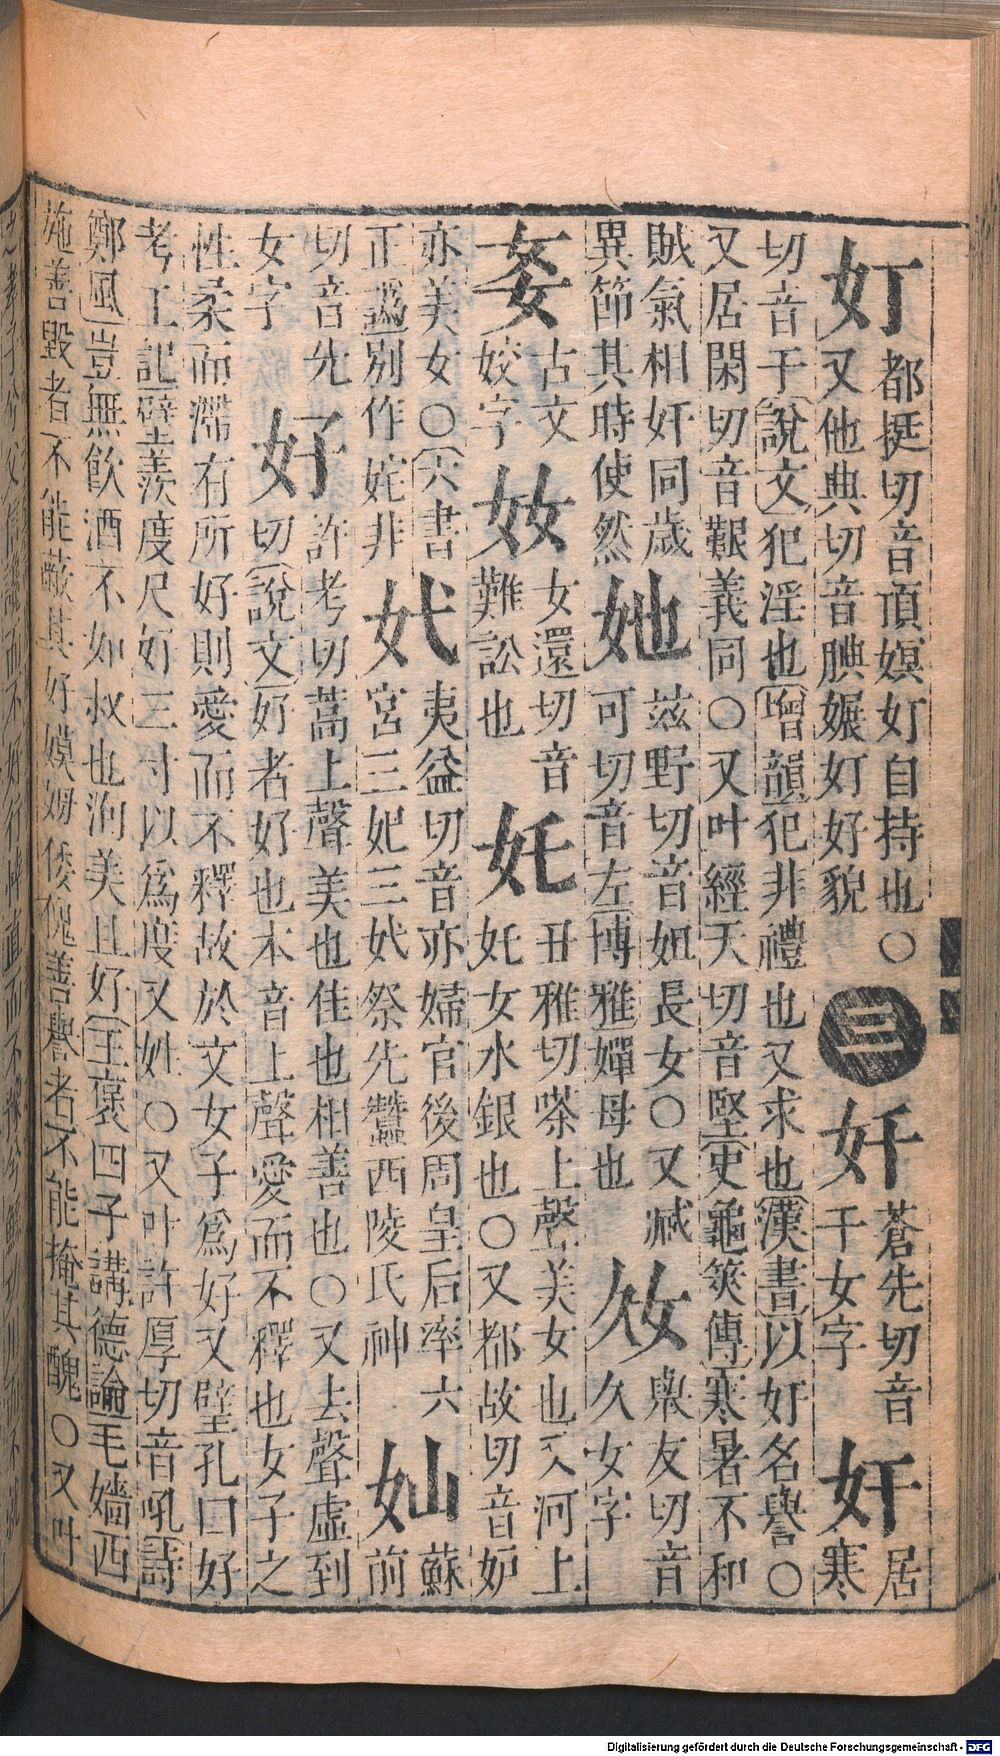 奵 都挺切音頂嫇奵自持也○
又他典切音腆㜊奵好貌
三
奷 蒼先切音
千女字
奸 居
寒
切音干說文犯淫也增韻犯非禮也又求也漢書以奸名譽○
又居閑切音艱義同○又叶經天切音堅史龜筴傳寒暑不和
賊氣相奸同歲
異節其時使然
她 茲野切音姐長女○又臧
可切音左博雅嬋母也
奺 舉友切音
久女字
㚣 古文
姣字
奻 女還切音
難訟也
奼 丑雅切㗬上聲美女也又河上
奼女水銀也○又都故切音妒
亦美女○六書
正譌別作姹非
㚤 夷益切音亦婦官後周皇后率六
宮三妃三㚤祭先蠶西陵氏神
奾 蘇
前
切音先
女字
好 許考切蒿上聲美也佳也相善也○又去聲虛到
切說文好者好也本音上聲愛而不釋也女子之
性柔而滯有所好則愛而不釋故於文女子爲好又璧孔曰好
考工記璧羨度尺好三寸以爲度又姓○又叶許厚切音吼詩
鄭風豈無飲酒不如叔也洵美且好王褒四子講德論毛嬙西
施善毀者不能蔽其好嫫姆倭傀善譽者不能掩其醜○又叶
Digitalisierung gefördert durch die Deutsche Forschungsgemeinschaft - DFG